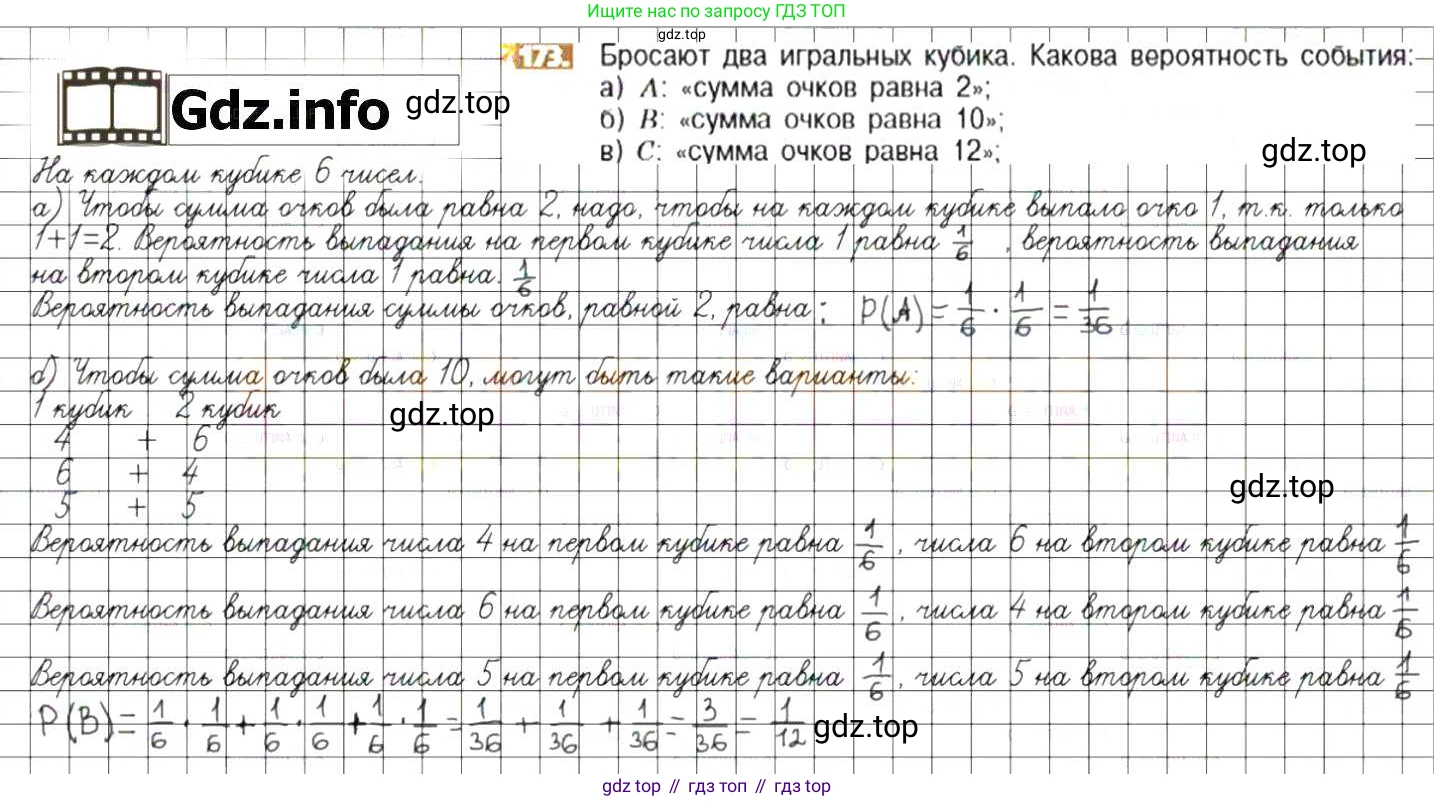 Ищите нас по запросу ГДЗ ТОП
gdz.top
173. Бросают два игральных кубика. Какова вероятность события:
а) A: «сумма очков равна 2»;
б) B: «сумма очков равна 10»;
в) C: «сумма очков равна 12»;
Gdz.info gdz.top
gdz.top
На каждом кубике 6 чисел.
а) Чтобы сумма очков была равна 2, надо, чтобы на каждом кубике выпало очко 1, т.к. только
1+1=2. Вероятность выпадания на первом кубике числа 1 равна 1/6 , вероятность выпадания
на втором кубике числа 1 равна. 1/6
Вероятность выпадания суммы очков, равной 2, равна: P(A) = 1/6 · 1/6 = 1/36
б) Чтобы сумма очков была 10, могут быть такие варианты:
1 кубик 2 кубик
gdz.top
4 + 6
6 + 4
gdz.top
5 + 5
Вероятность выпадания числа 4 на первом кубике равна 1/6 , числа 6 на втором кубике равна 1/6
Вероятность выпадания числа 6 на первом кубике равна 1/6 , числа 4 на втором кубике равна 1/6
Вероятность выпадания числа 5 на первом кубике равна 1/6 , числа 5 на втором кубике равна 1/6
P(B) = 1/6 · 1/6 + 1/6 · 1/6 + 1/6 · 1/6 = 1/36 + 1/36 + 1/36 = 3/36 = 1/12
gdz.top
gdz top // гдз топ // gdz top